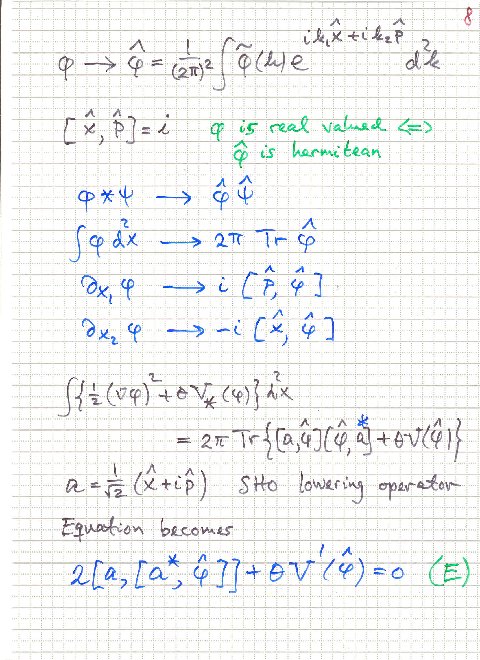 8
φ → φ̂ = 1/(2π)² ∫ φ̃(k) e^{ik₁x̂ + ik₂p̂} d²k
[x̂, p̂] = i   φ is real valued <=>
φ̂ is hermitean
φ * ψ → φ̂ ψ̂
∫ φ d²x → 2π Tr φ̂
∂x₁ φ → i [p̂, φ̂]
∂x₂ φ → -i [x̂, φ̂]
∫{½ (∇φ)² + θ V_*(φ)} d²x
= 2π Tr{[a, φ̂][φ̂, a*] + θV(φ̂)}
a = 1/√2 (x̂ + ip̂)   SHO lowering operator
Equation becomes
2[a, [a*, φ̂]] + θ V'(φ̂) = 0   (E)